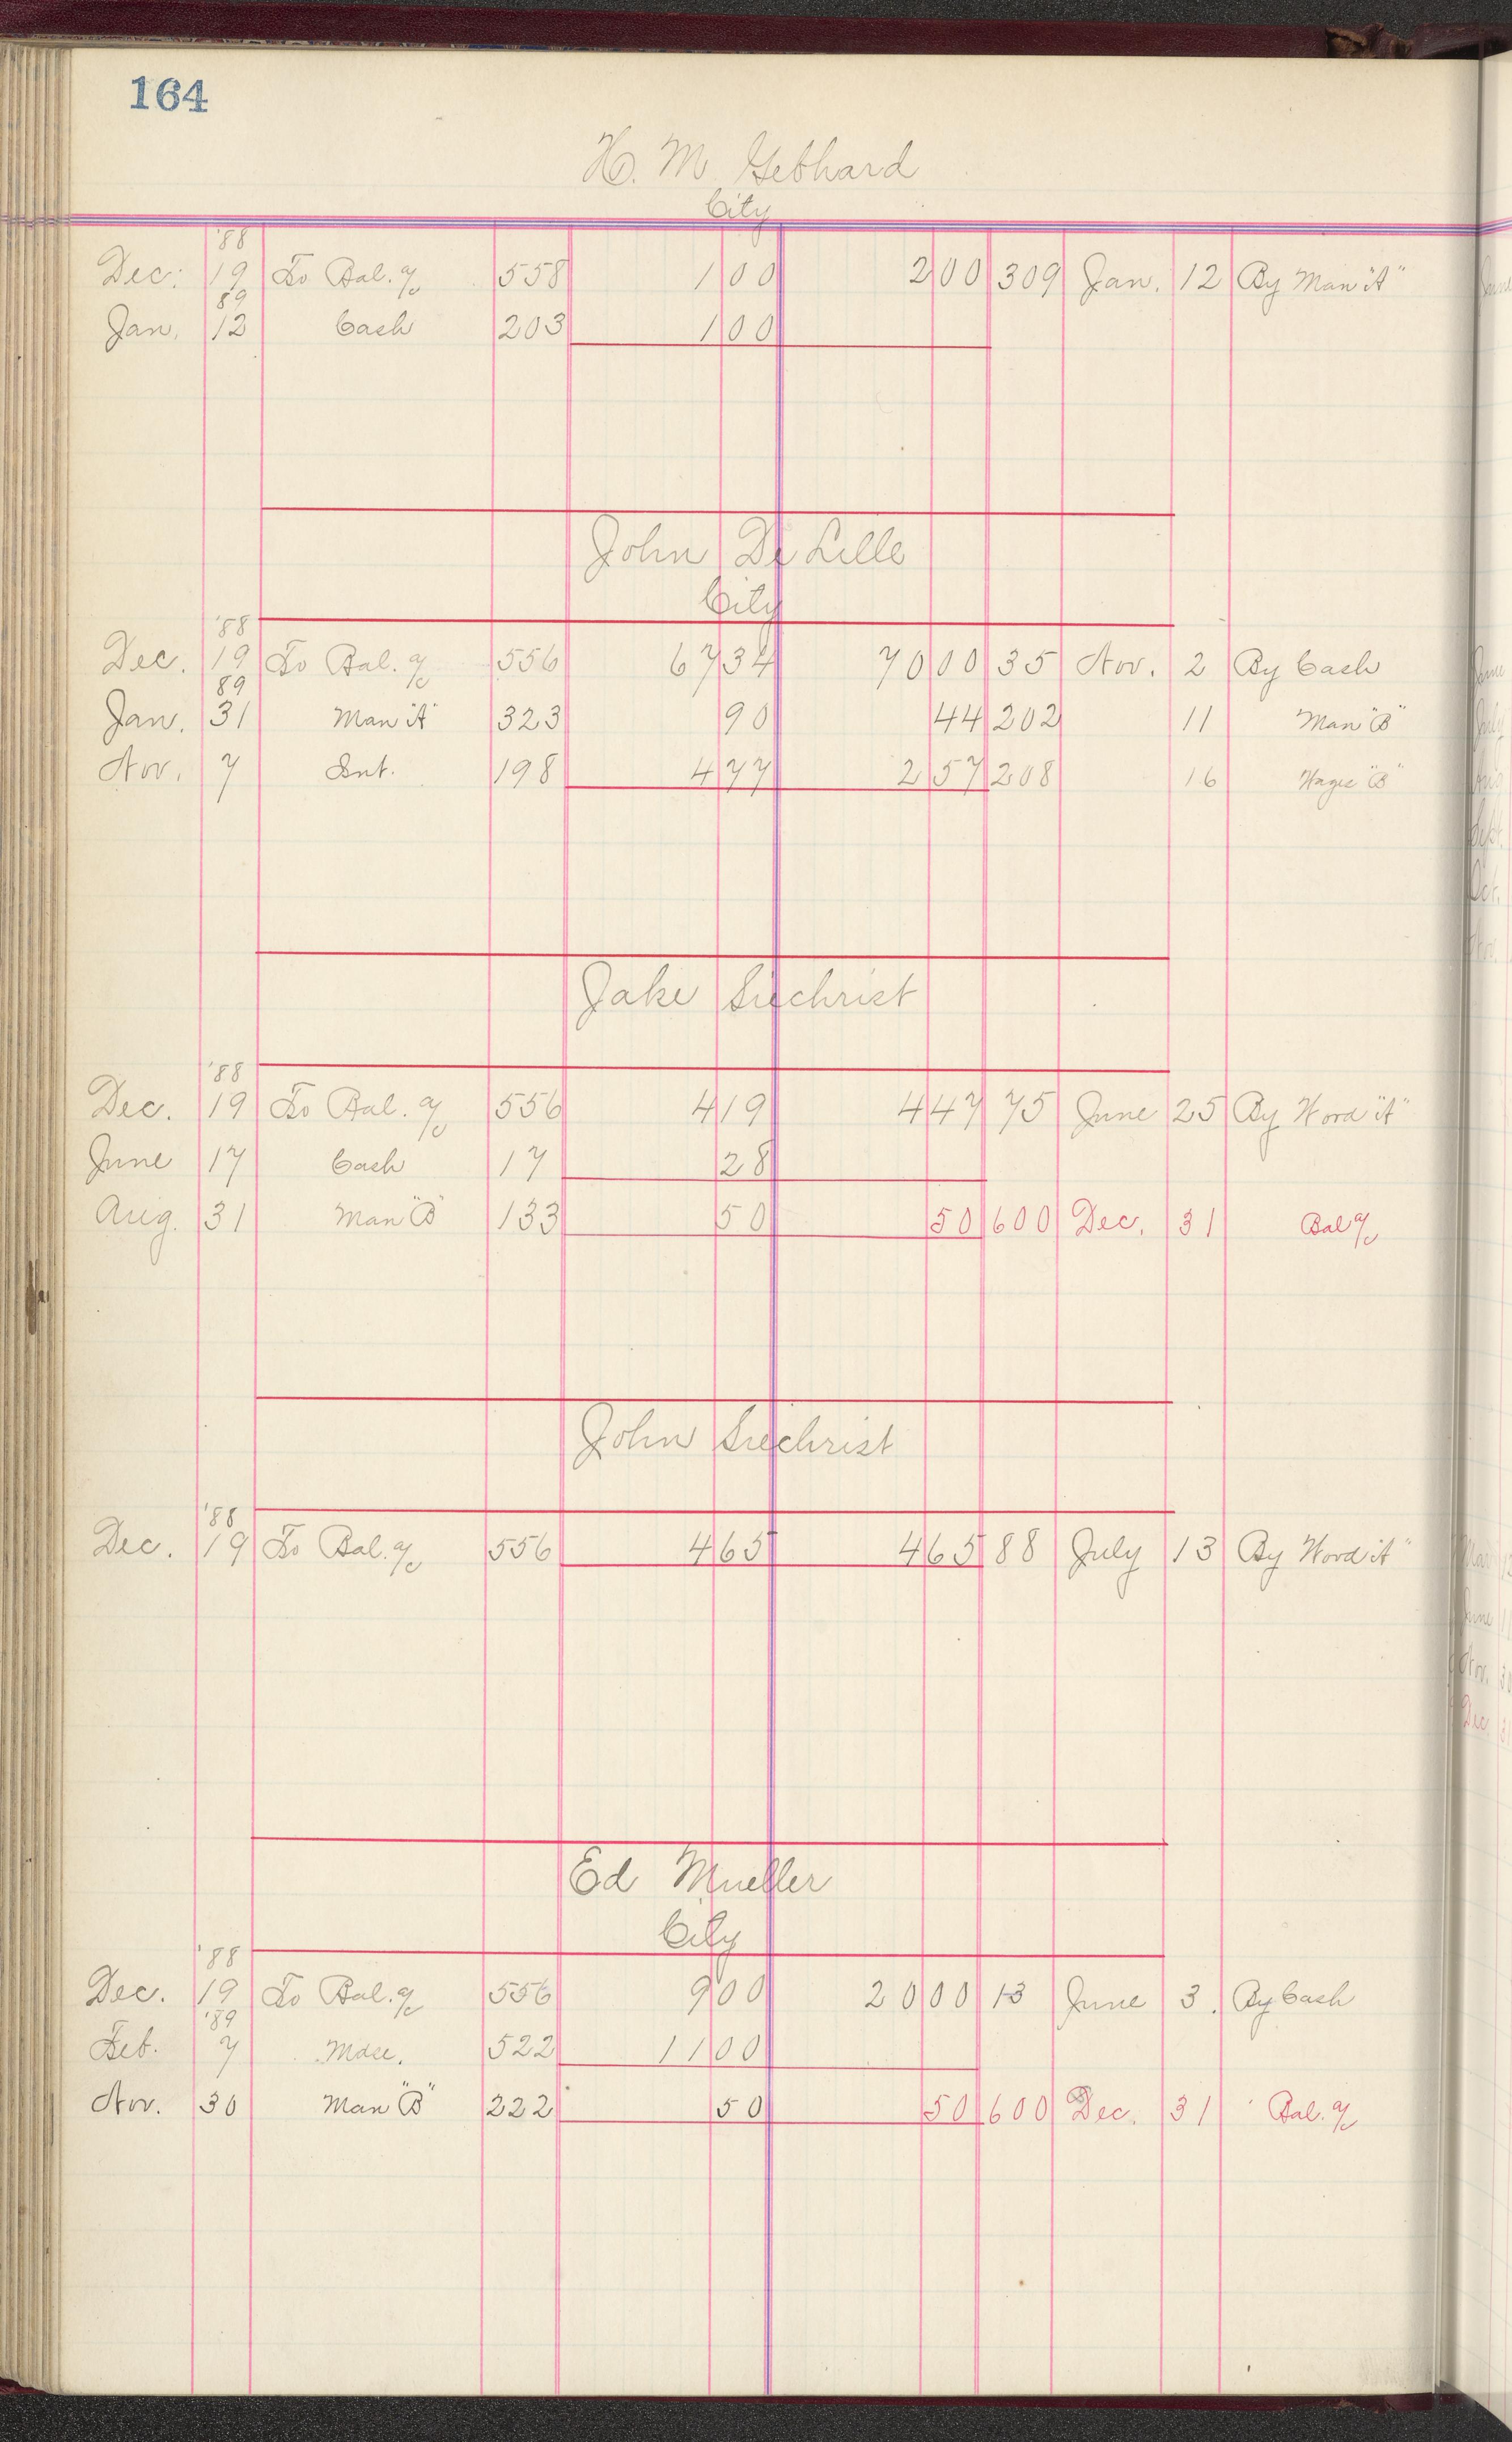 164
H. M. Gebhard
City
'88
Dec. 19 To Bal. a/c 558 100 200 309 Jan. 12 By Man "A"
89
Jan. 12 Cash 203 100
John De Lille
City
'88
Dec. 19 To Bal. a/c 556 6734 7000 35 Nov. 2 By Cash
89
Jan. 31 Man "A" 323 90 44 202 11 Man "B"
Nov. 7 Int. 198 477 257 208 16 Wage "B"
Jake Siechrist
'88
Dec. 19 To Bal. a/c 556 419 447 75 June 25 By Word "A"
June 17 Cash 17 28
Aug. 31 Man "B" 133 50 50 600 Dec. 31 Bal a/c
John Siechrist
'88
Dec. 19 To Bal. a/c 556 465 465 88 July 13 By Word "A"
Ed Mueller
City
'88
Dec. 19 To Bal. a/c 556 900 2000 13 June 3. By Cash
'89
Feb. 7 Mdse. 522 1100
Nov. 30 Man "B" 222 50 50 600 Dec. 31 Bal. a/c